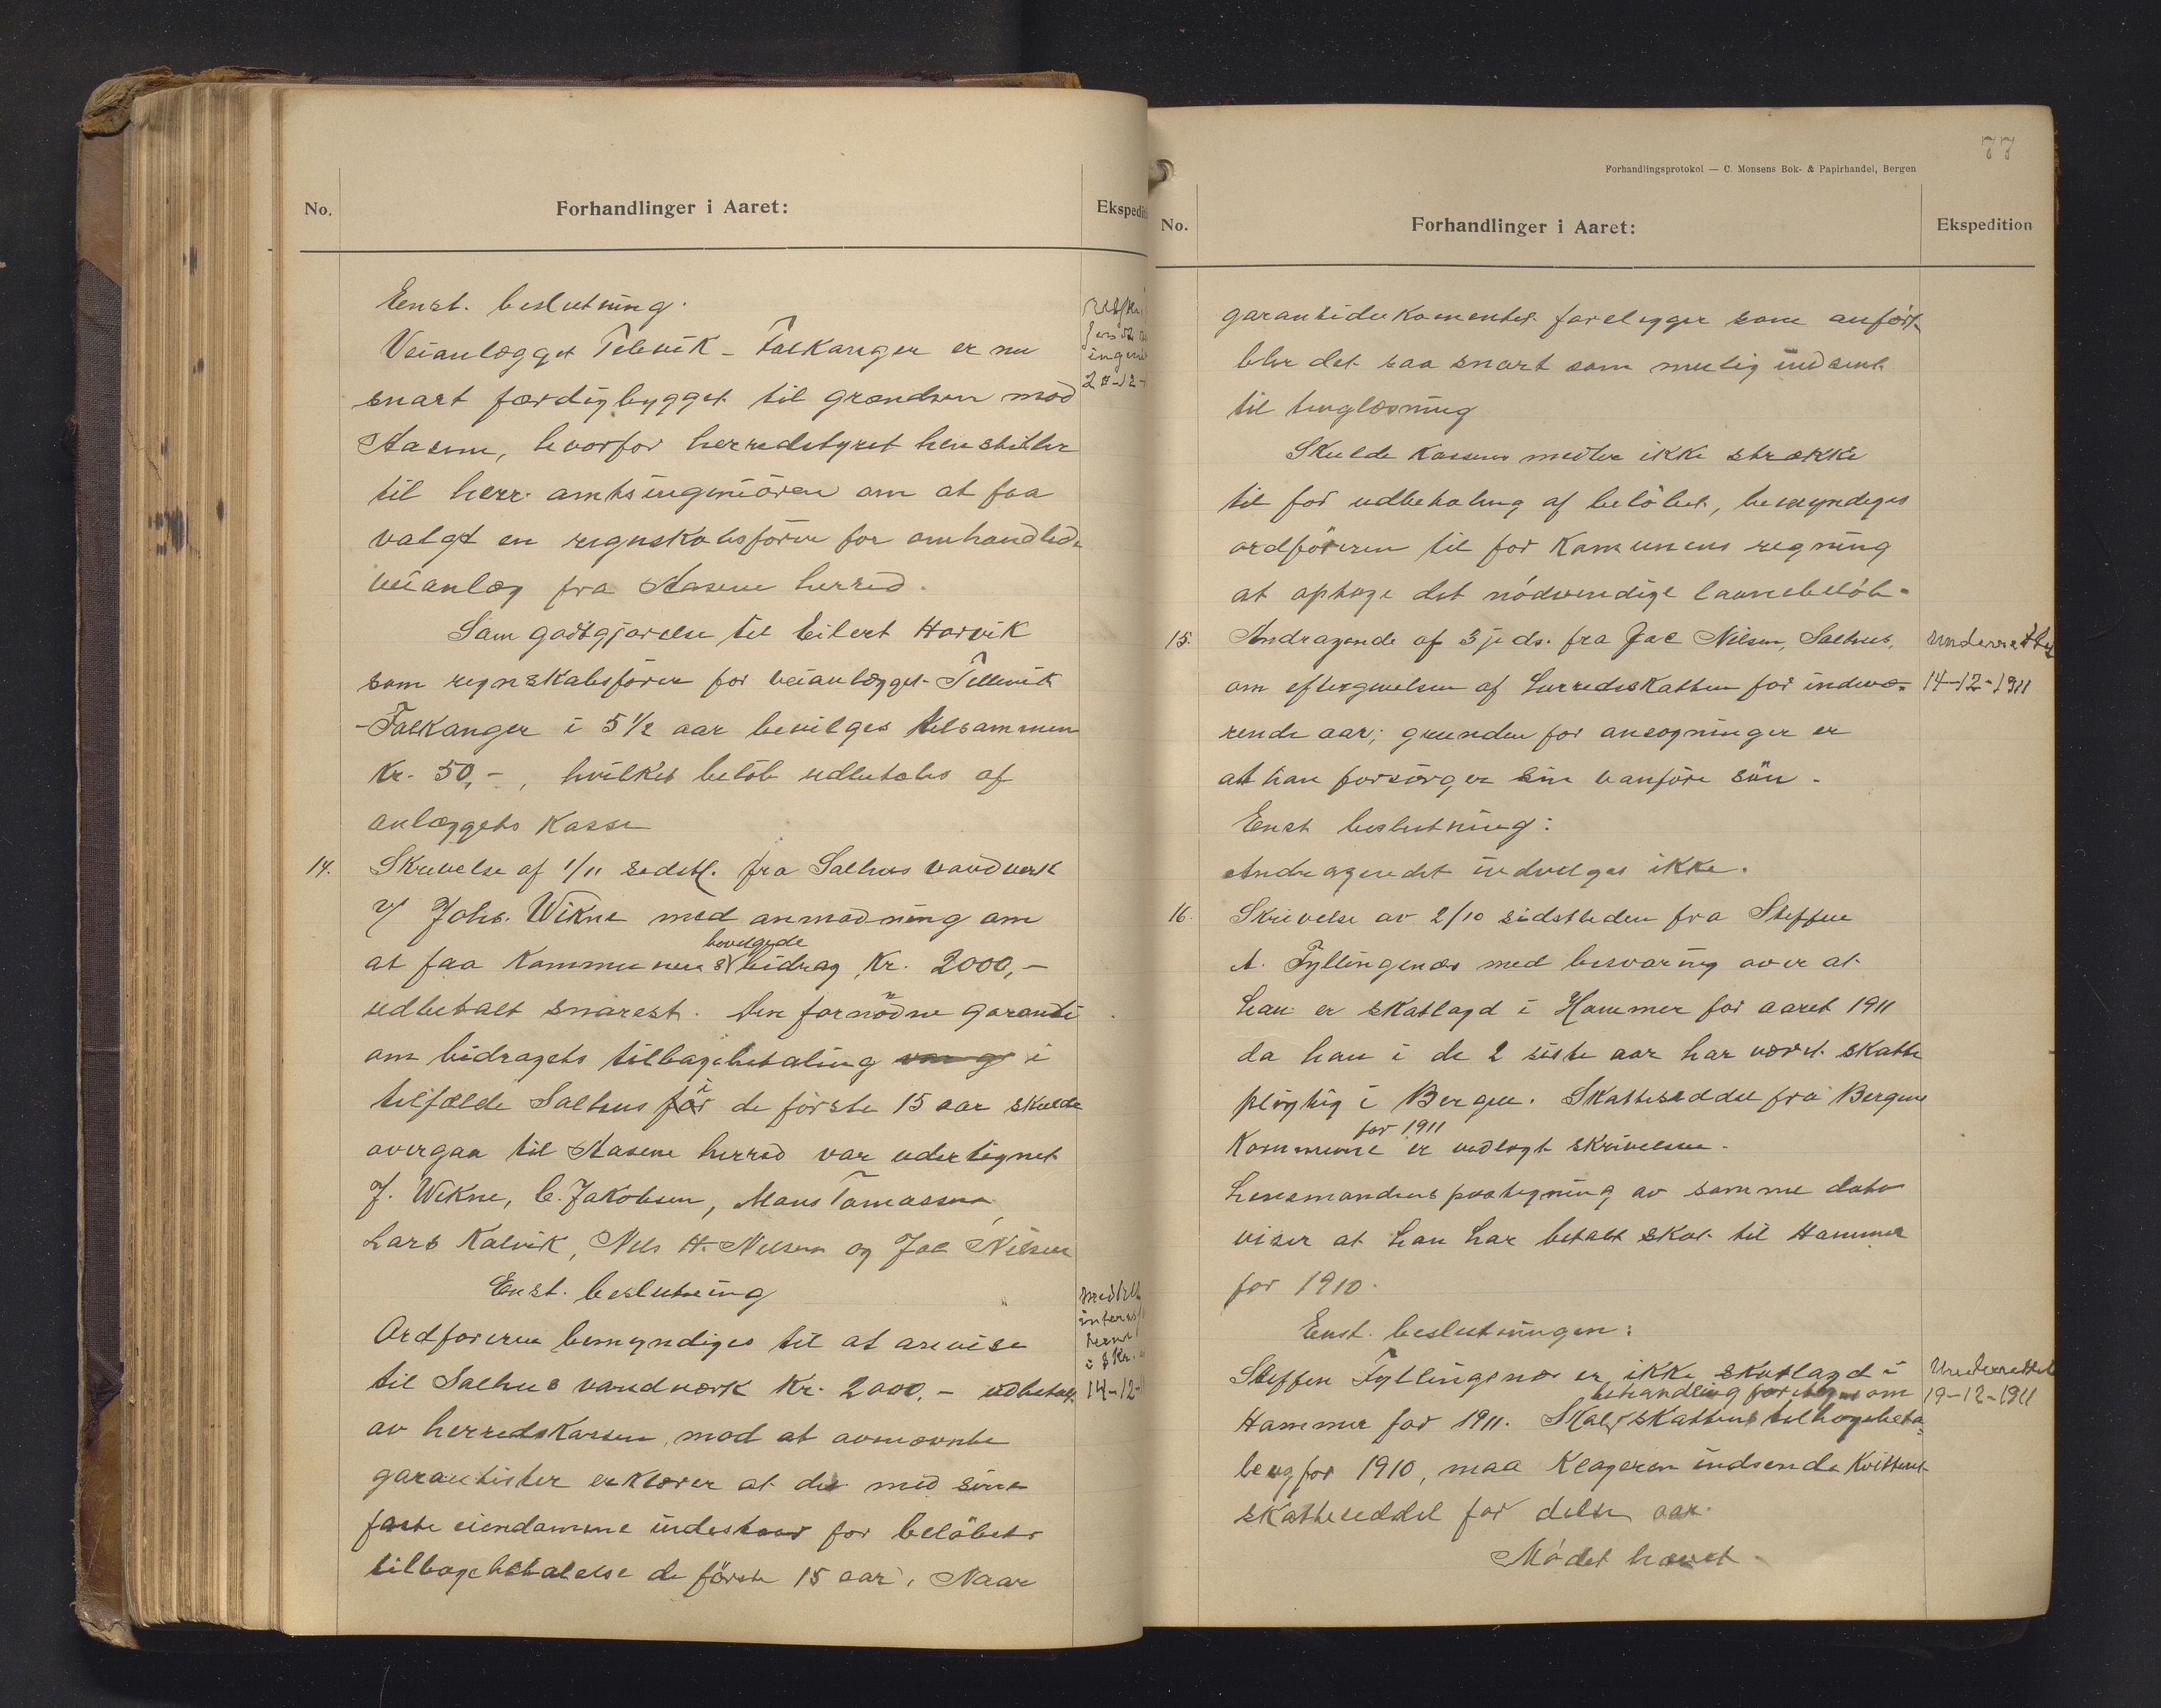 No.
Forhandlinger i Aaret:
Enst. beslutning.
Veianlægget Tellevik - Falkanger er nu
snart færdigbygget til grændsen mod
Aasene, hvorfor herredstyret henstiller
til herr amtsingeniören om at faa
valgt en regnskabsförer for omhandlede
veianlæg fra Aasene herred.
Som godtgjørelse til Eilert Horvik
som regnskabsförer for veianlægget Tellevik
-Falkanger i 5 1/2 aar bevilges tilsammen
Kr. 50,-, hvilket belöb udbetales af
anlæggets Kasse
20-12-
14. Skrivelse af 1/11 sidstl. fra Salhus vandverk
v/ Johs. Wikne med anmodning om
at faa Kommunens bevilgede bidrag, Kr. 2000,-
udbetalt snarest. Den fornödne garanti
om bidragets tilbagebetaling i
tilfælde Salhus i de förste 15 aar skulde
overgaa til Aasene herred var undertegnet
J. Wikne, C. Jakobsen, Mons Tomassen,
Lars Kalvik, Nils H. Nilsen og Jac Nilsen
Enst. beslutning
Ordföreren bemyndiges til at anvise
til Salhus vandværk Kr. 2000.- udbetalt
av herredskassen, mod at ovnævnte
garantister erklærer at de med sine
faste eiendomme indestaar for belöbets
tilbagebetalelse de förste 15 aar. Naar
14-12-
77
Forhandlingsprotokol — C. Monsens Bok- & Papirhandel, Bergen
No.
Forhandlinger i Aaret:
Ekspedition
garantidokumentet forelegger som anfört
blir det saa snart som mulig indsent
til tinglæsning
Skulde Kassens midler ikke strække
til for udbetaling af belöbet, bemyndiges
ordföreren til for Kommunens regning
at optage det nödvendige laanebelöb.
15. Andragende af 3 je ds. fra Jac Nilsen, Salhus,
om eftergivelsen af herredsskatten for indevæ-
rende aar; grunden for ansögningen er
at han forsörger sin vanföre sön.
Enst beslutning:
Andragendet indvilges ikke.
Underrettet
14-12-1911
16. Skrivelse av 2/10 sidstleden fra Steffen
A. Fyllingsnæs med besværing over at
han er skatlagd i Hammer for aaret 1911
da han i de 2 siste aar har været skatte
pligtig i Bergen. Skatteseddel fra Bergens
Kommune for 1911 er vedlagt skrivelsen.
Lensmandens paategning av samme dato
viser at han har betalt skat til Hammer
for 1910.
Enst. beslutningen:
Steffen Fyllingsnæs er ikke skatlagd i
Hammer for 1911. Skal behandling foretages om skattens tilbagebeta-
ling for 1910, maa Klageren indsende Kvitteret
skatteseddel for dette aar.
Mödet hævet.
Underrettet
19-12-1911